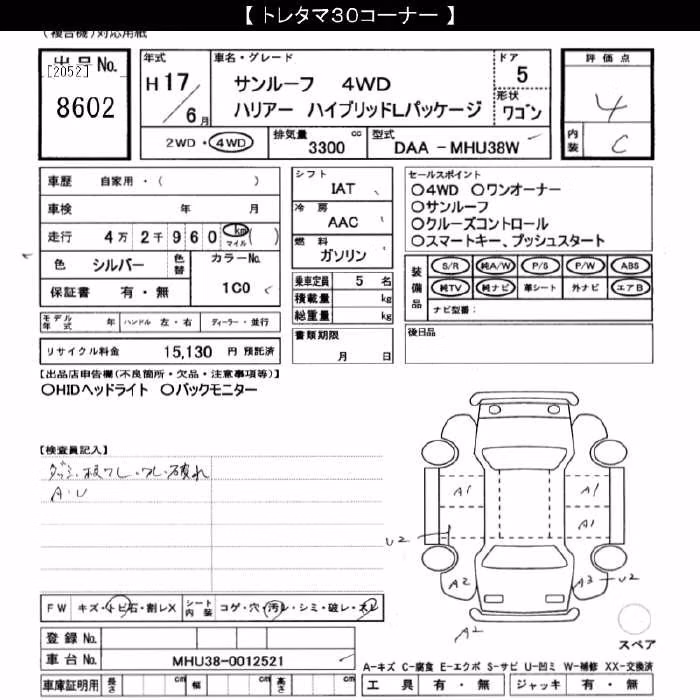 【 トレタマ30コーナー 】
(複合機)対応用紙
出品No.
[2052]
8602
年式
H17/6月
車名・グレード
サンルーフ 4WD
ハリアー ハイブリッドLパッケージ
ドア
5
形状
ワゴン
評価点
4
内装
C
2WD・4WD
排気量
3300 cc
型式
DAA - MHU38W
車歴 自家用・( )
車検 年 月
走行 4万2千960 km マイル ( )
色 シルバー
色替
カラーNo.
1C0
保証書 有・無
シフト
IAT
冷房
AAC
燃料
ガソリン
乗車定員 5 名
積載量 kg
総重量 kg
書類期限
月 日
セールスポイント
○4WD ○ワンオーナー
○サンルーフ
○クルーズコントロール
○スマートキー、プッシュスタート
装備品
S/R 純A/W P/S P/W ABS
純TV 純ナビ 革シート 外ナビ エアB
ナビ型番:
後日品
モデル年式 年 ハンドル 左・右 ディーラー・並行
リサイクル料金 15,130 円 預託済
【出品店申告欄(不良箇所・欠品・注意事項等)】
○HIDヘッドライト ○バックモニター
【検査員記入】
A・U
A1
A1
A1
U2
A2
A3
U2
A2
FW キズ・トビ石・割レX
シート内装 コゲ・穴・汚レ・シミ・破レ・スレ
登録No.
車台No. MHU38-0012521
車庫証明用 長さ cm 幅 cm 高さ cm
スペア
A-キズ C-腐食 E-エクボ S-サビ U-凹ミ W-補修 XX-交換済
工具 有・無 ジャッキ 有・無